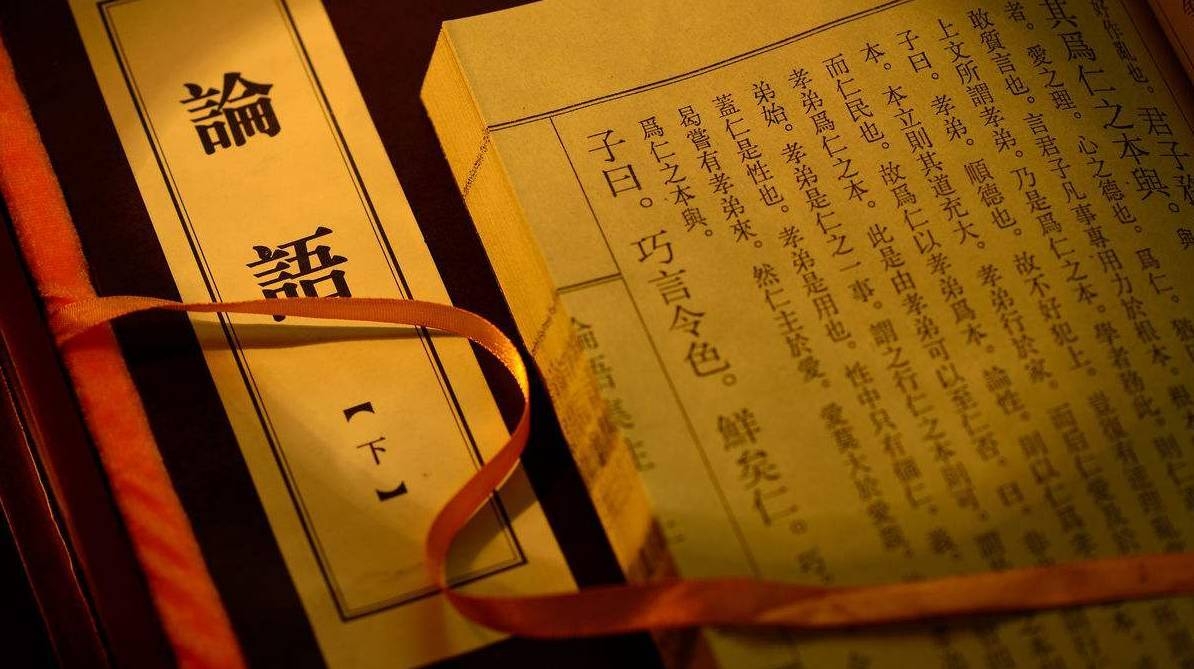 論語
【下】
好作亂也。君子務
其爲仁之本與。與
者。愛之理。心之德也。爲仁。猶
敢質言也。言君子凡事專用力於根本。根本
上文所謂孝弟。乃是爲仁之本。學者務此。則仁
子曰。孝弟。順德也。故不好犯上。豈復有逆理亂
本。本立則其道充大。孝弟行於家。而后仁愛及於
而仁民也。故爲仁以孝弟爲本。論性。則以仁爲孝
孝弟爲仁之本。此是由孝弟可以至仁否。曰。非
弟始。孝弟是仁之一事。謂之行仁之本則可。謂
蓋仁是性也。孝弟是用也。性中只有個仁。義。
曷嘗有孝弟來。然仁主於愛。愛莫大於愛親。
爲仁之本與。
子曰。巧言令色。鮮矣仁。巧
論語集注